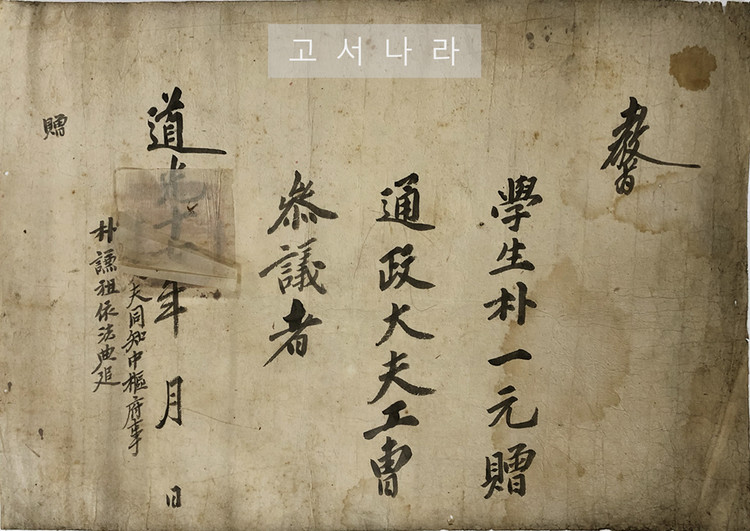 고서나라
教旨
學生朴一元贈
通政大夫工曺
叅議者
道光十年 月 日
夫同知中樞府事
朴謙祖依法典追
贈